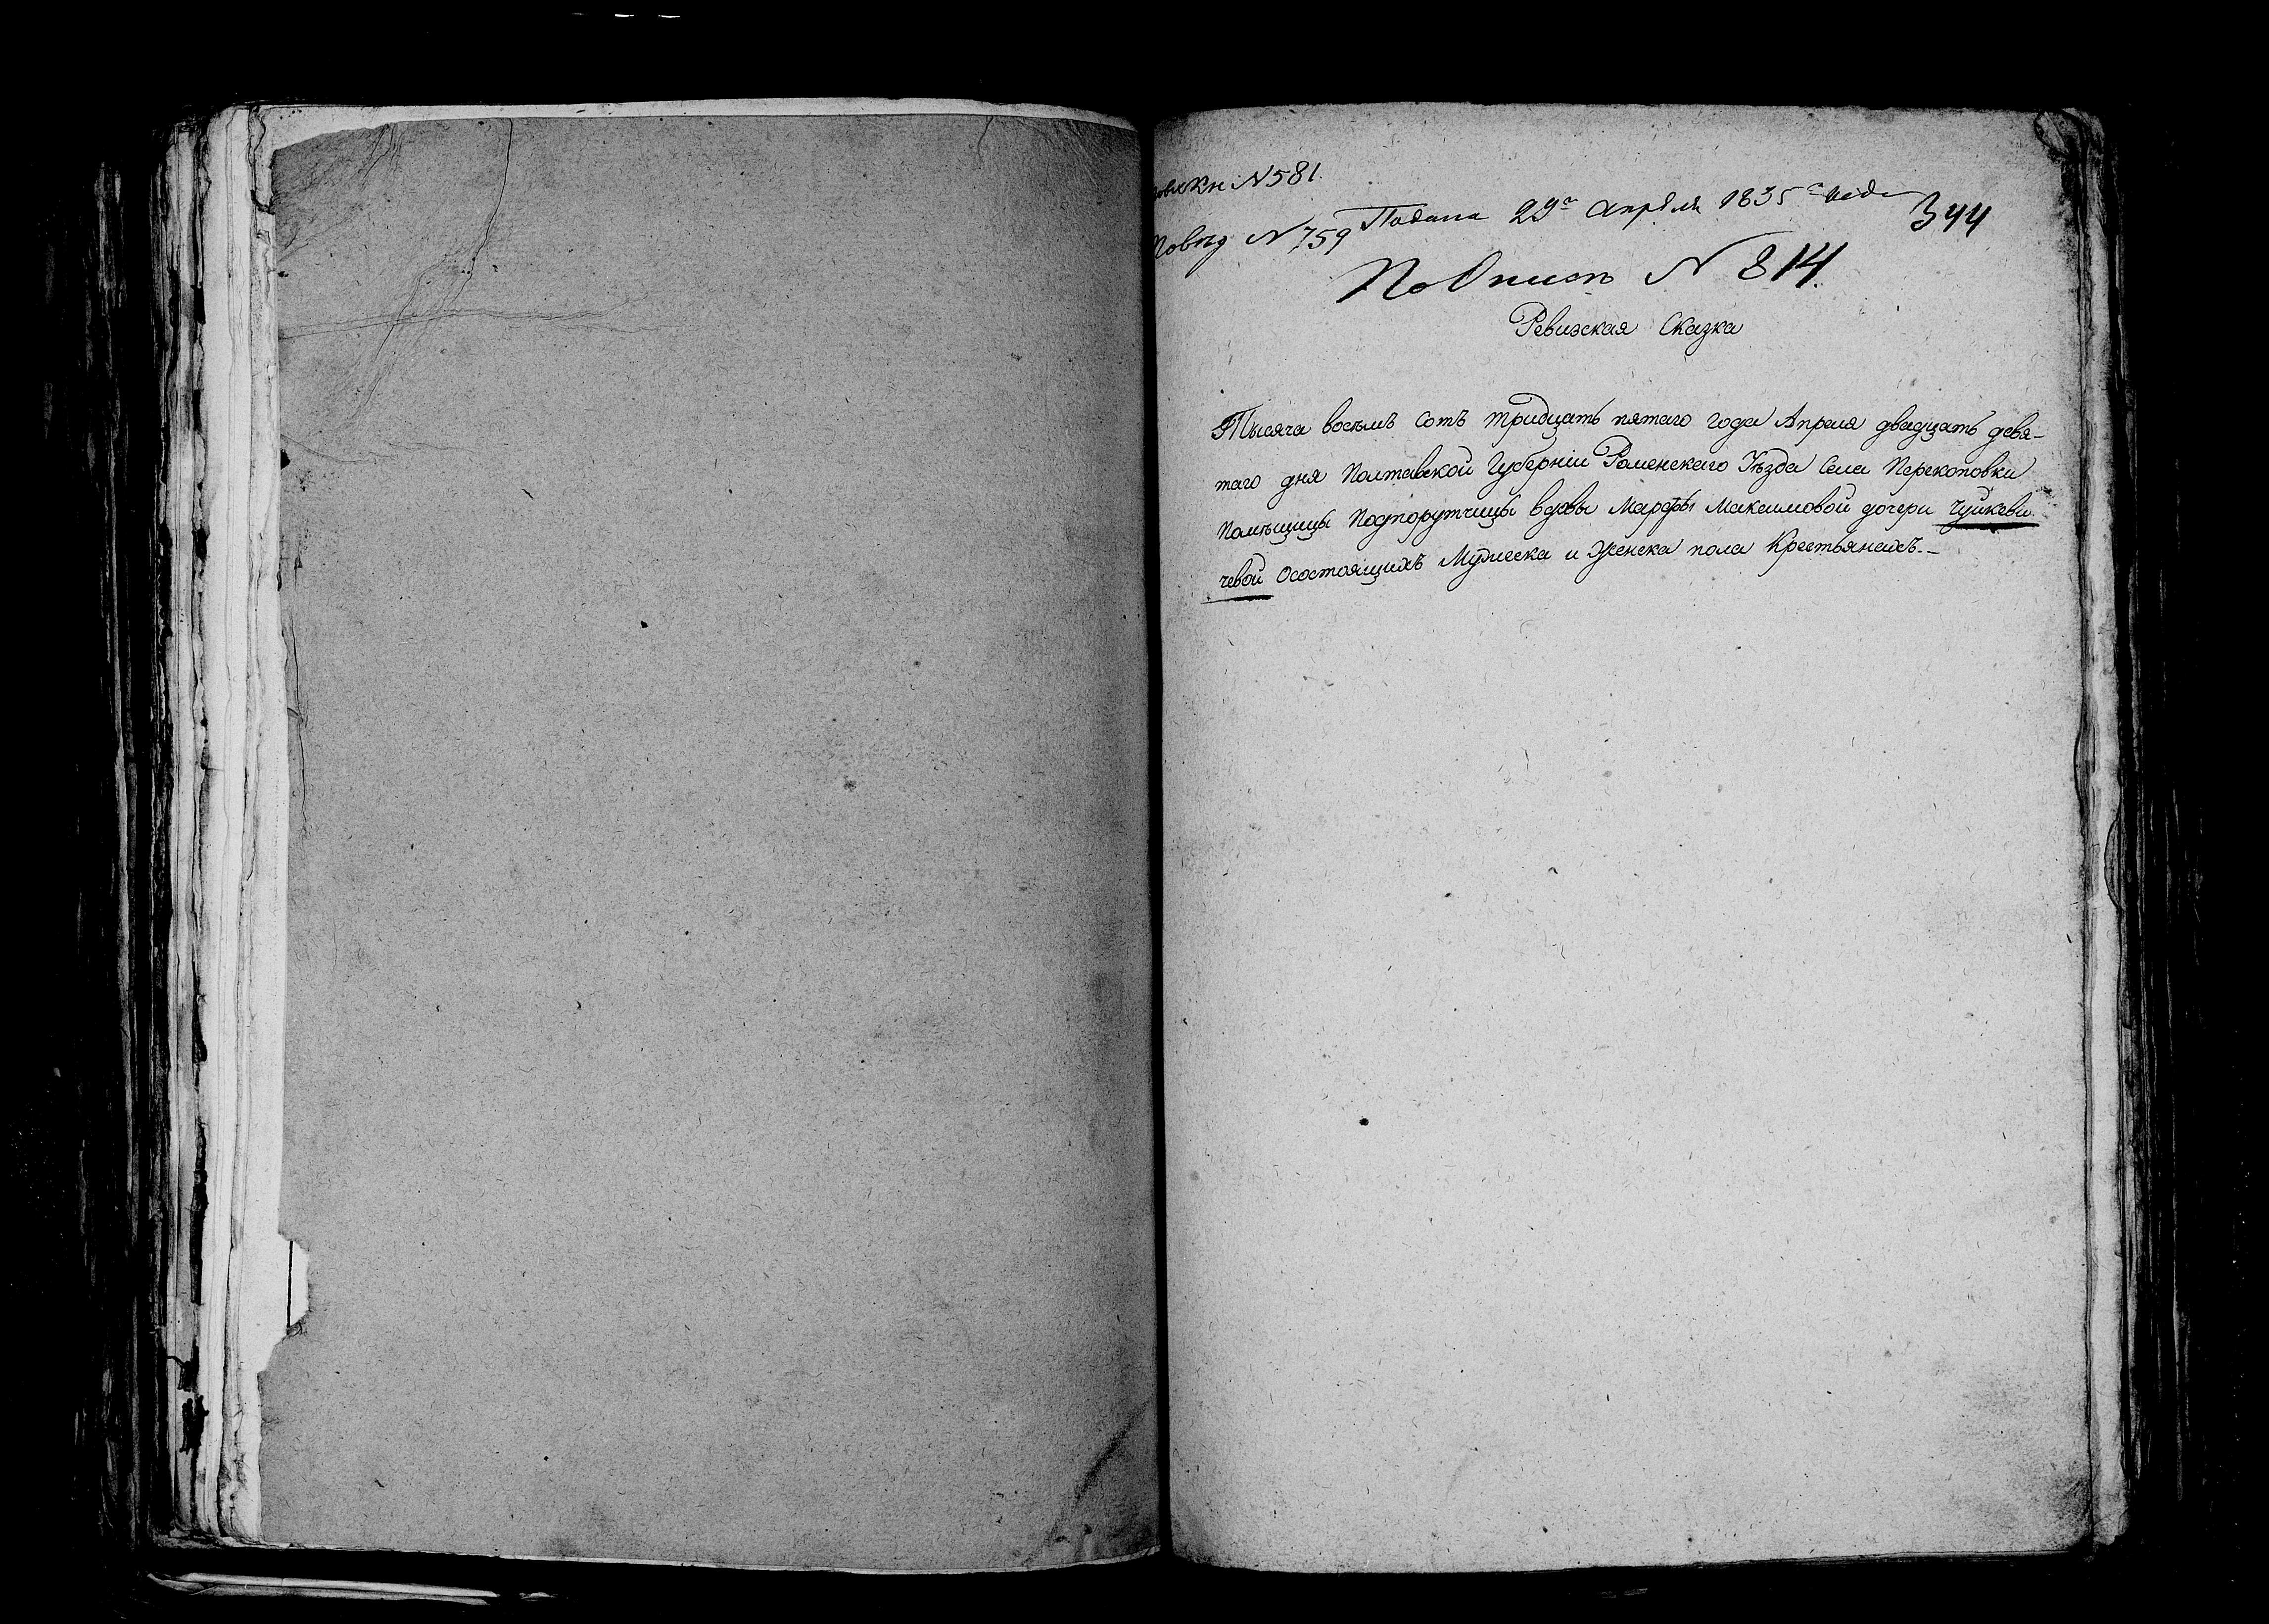 № 581.
№ 759 Подана 29го Апреля 1835го года
344
По Описи № 814.
Ревизская Сказка
Тысяча восемь сотъ тридцать пятаго года Апреля двадцать девя-
таго дня Полтавской Губерніи Роменскаго Уѣзда Села Перекоповки
Помѣщицы Подпорутчицы вдовы Марфы Максимовой дочери Чуйкеви-
чевой Осостоящихъ Мужеска и Женска пола Крестьянахъ.-